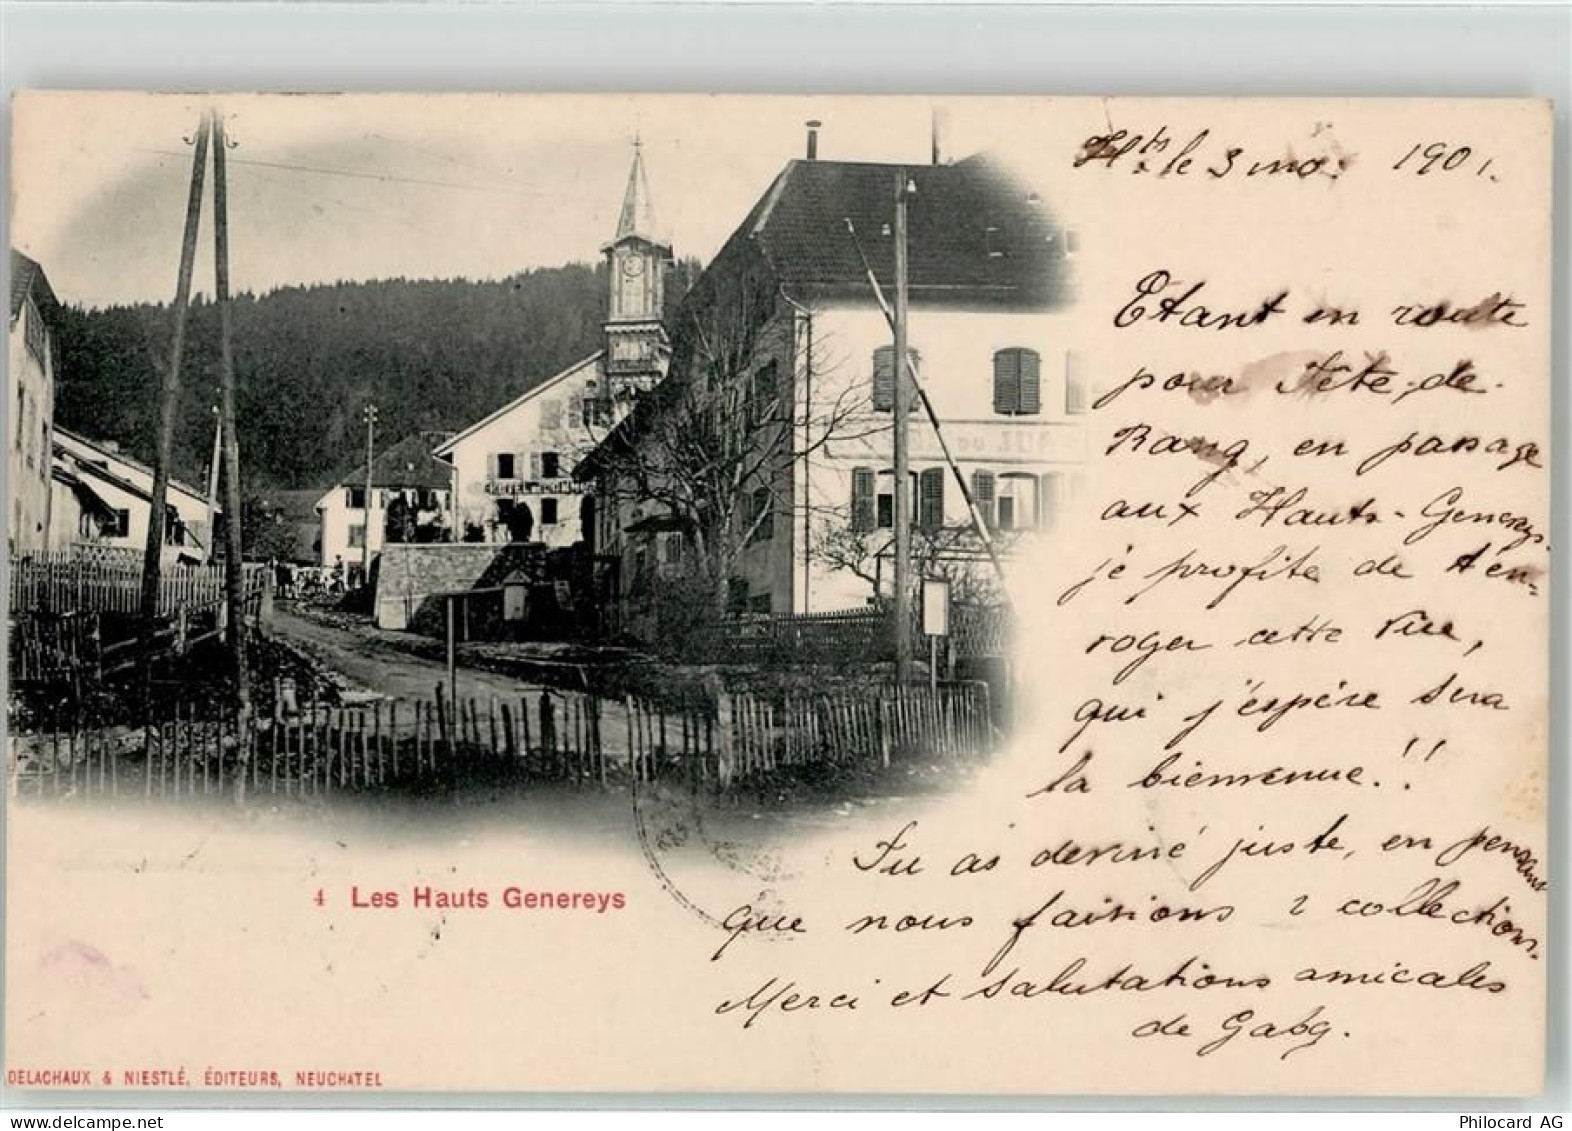 Hts le 3 mo. 1901.
Etant en route
pour Tête-de-
Rang, en passage
aux Hauts-Genereys.
je profite de t'en-
voyer cette vue,
qui j'espère sera
la bienvenue!!
Tu as deviné juste, en pensant
que nous faisions 2 collections.
Merci et salutations amicales
de Gaby.
HOTEL COMMUNE
4 Les Hauts Genereys
DELACHAUX & NIESTLÉ, ÉDITEURS, NEUCHATEL
Philocard AG